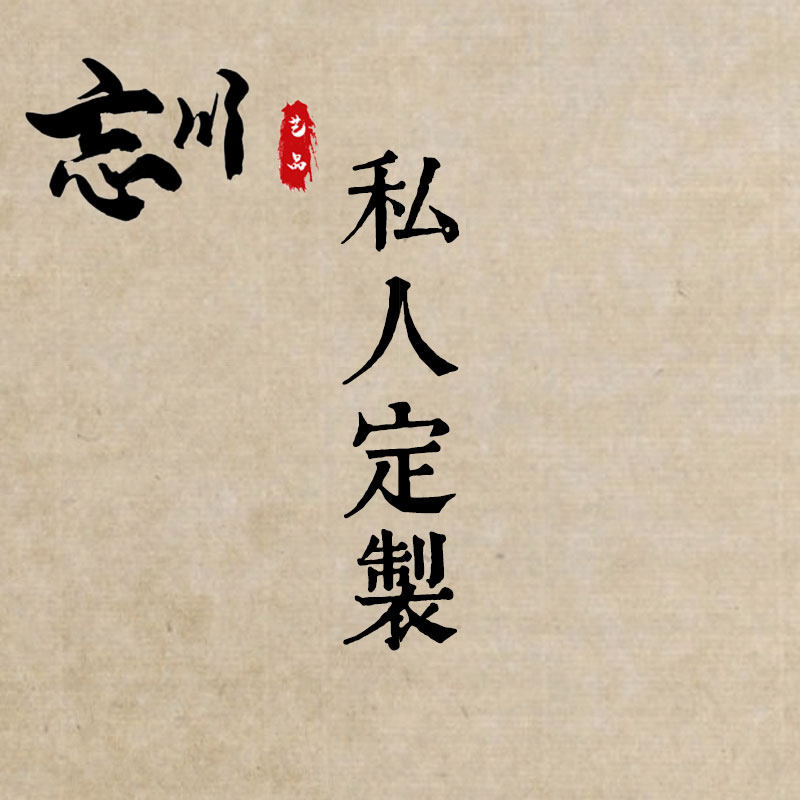 忘川
艺品
私人定製